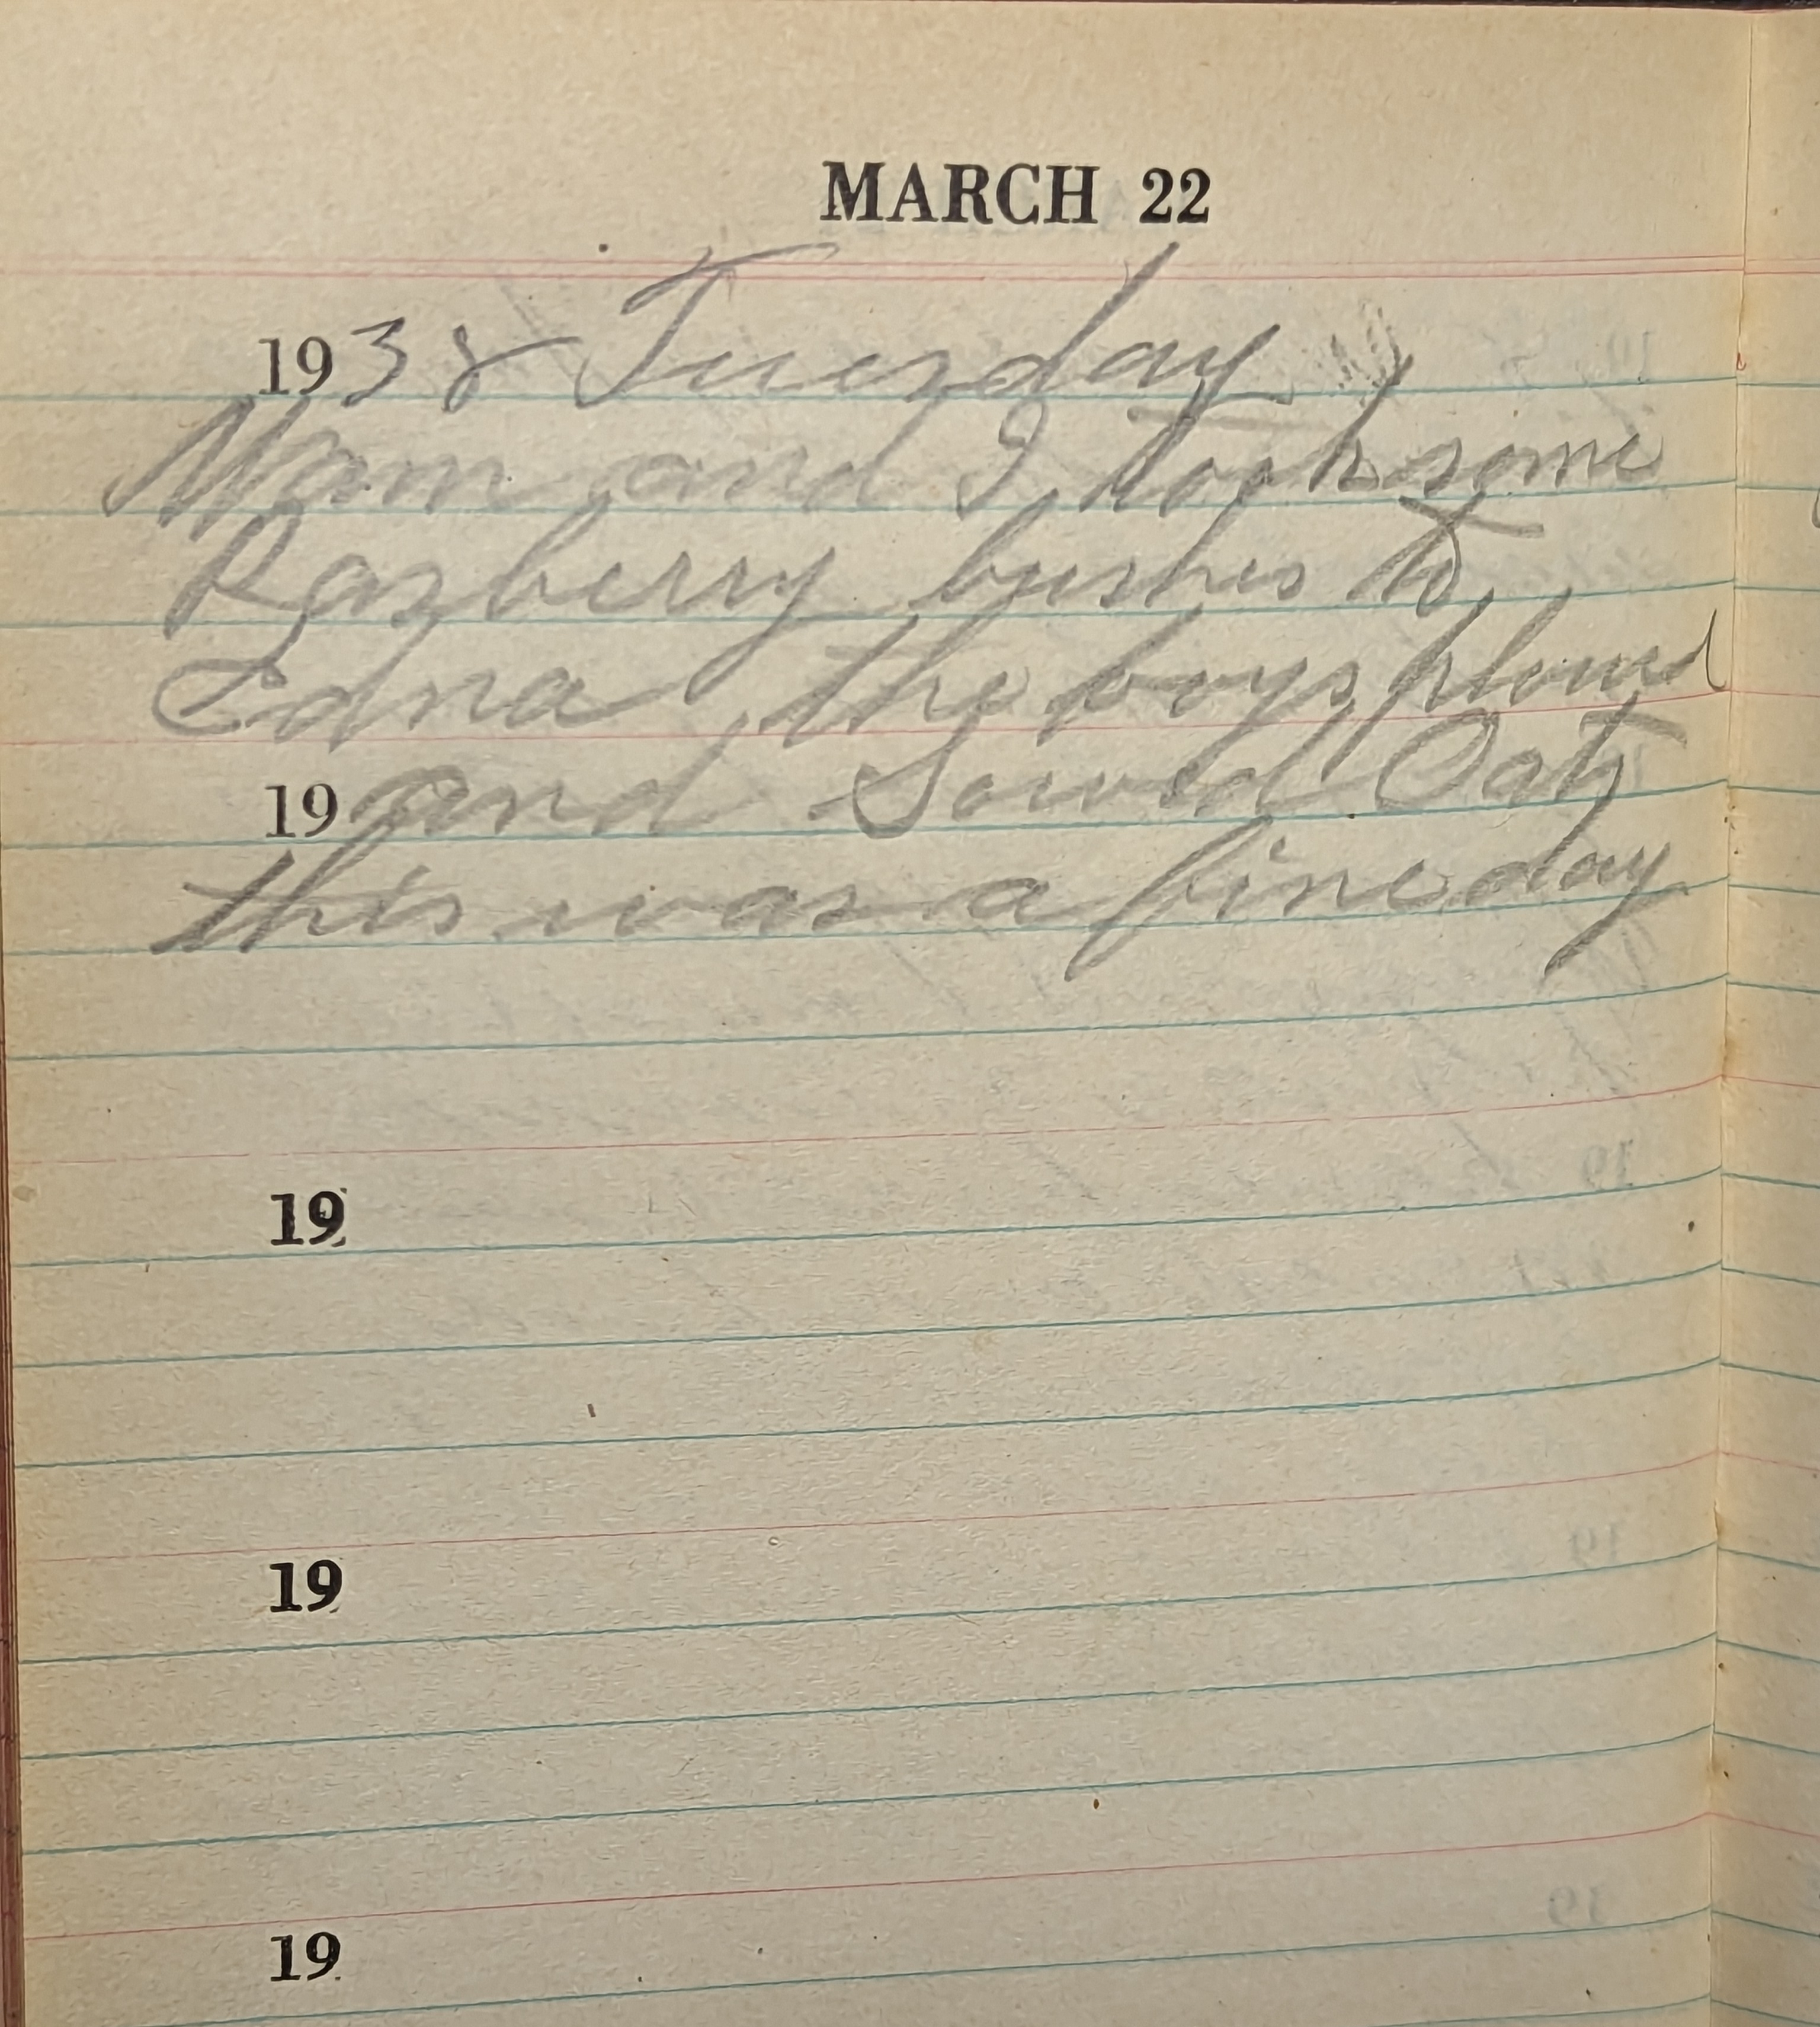 MARCH 22
1938 Tuesday
Mam and I took some
Razberry bushes to
Edna the boys plowed
19 and Sowed Oats
this was a fine day
19
19
19